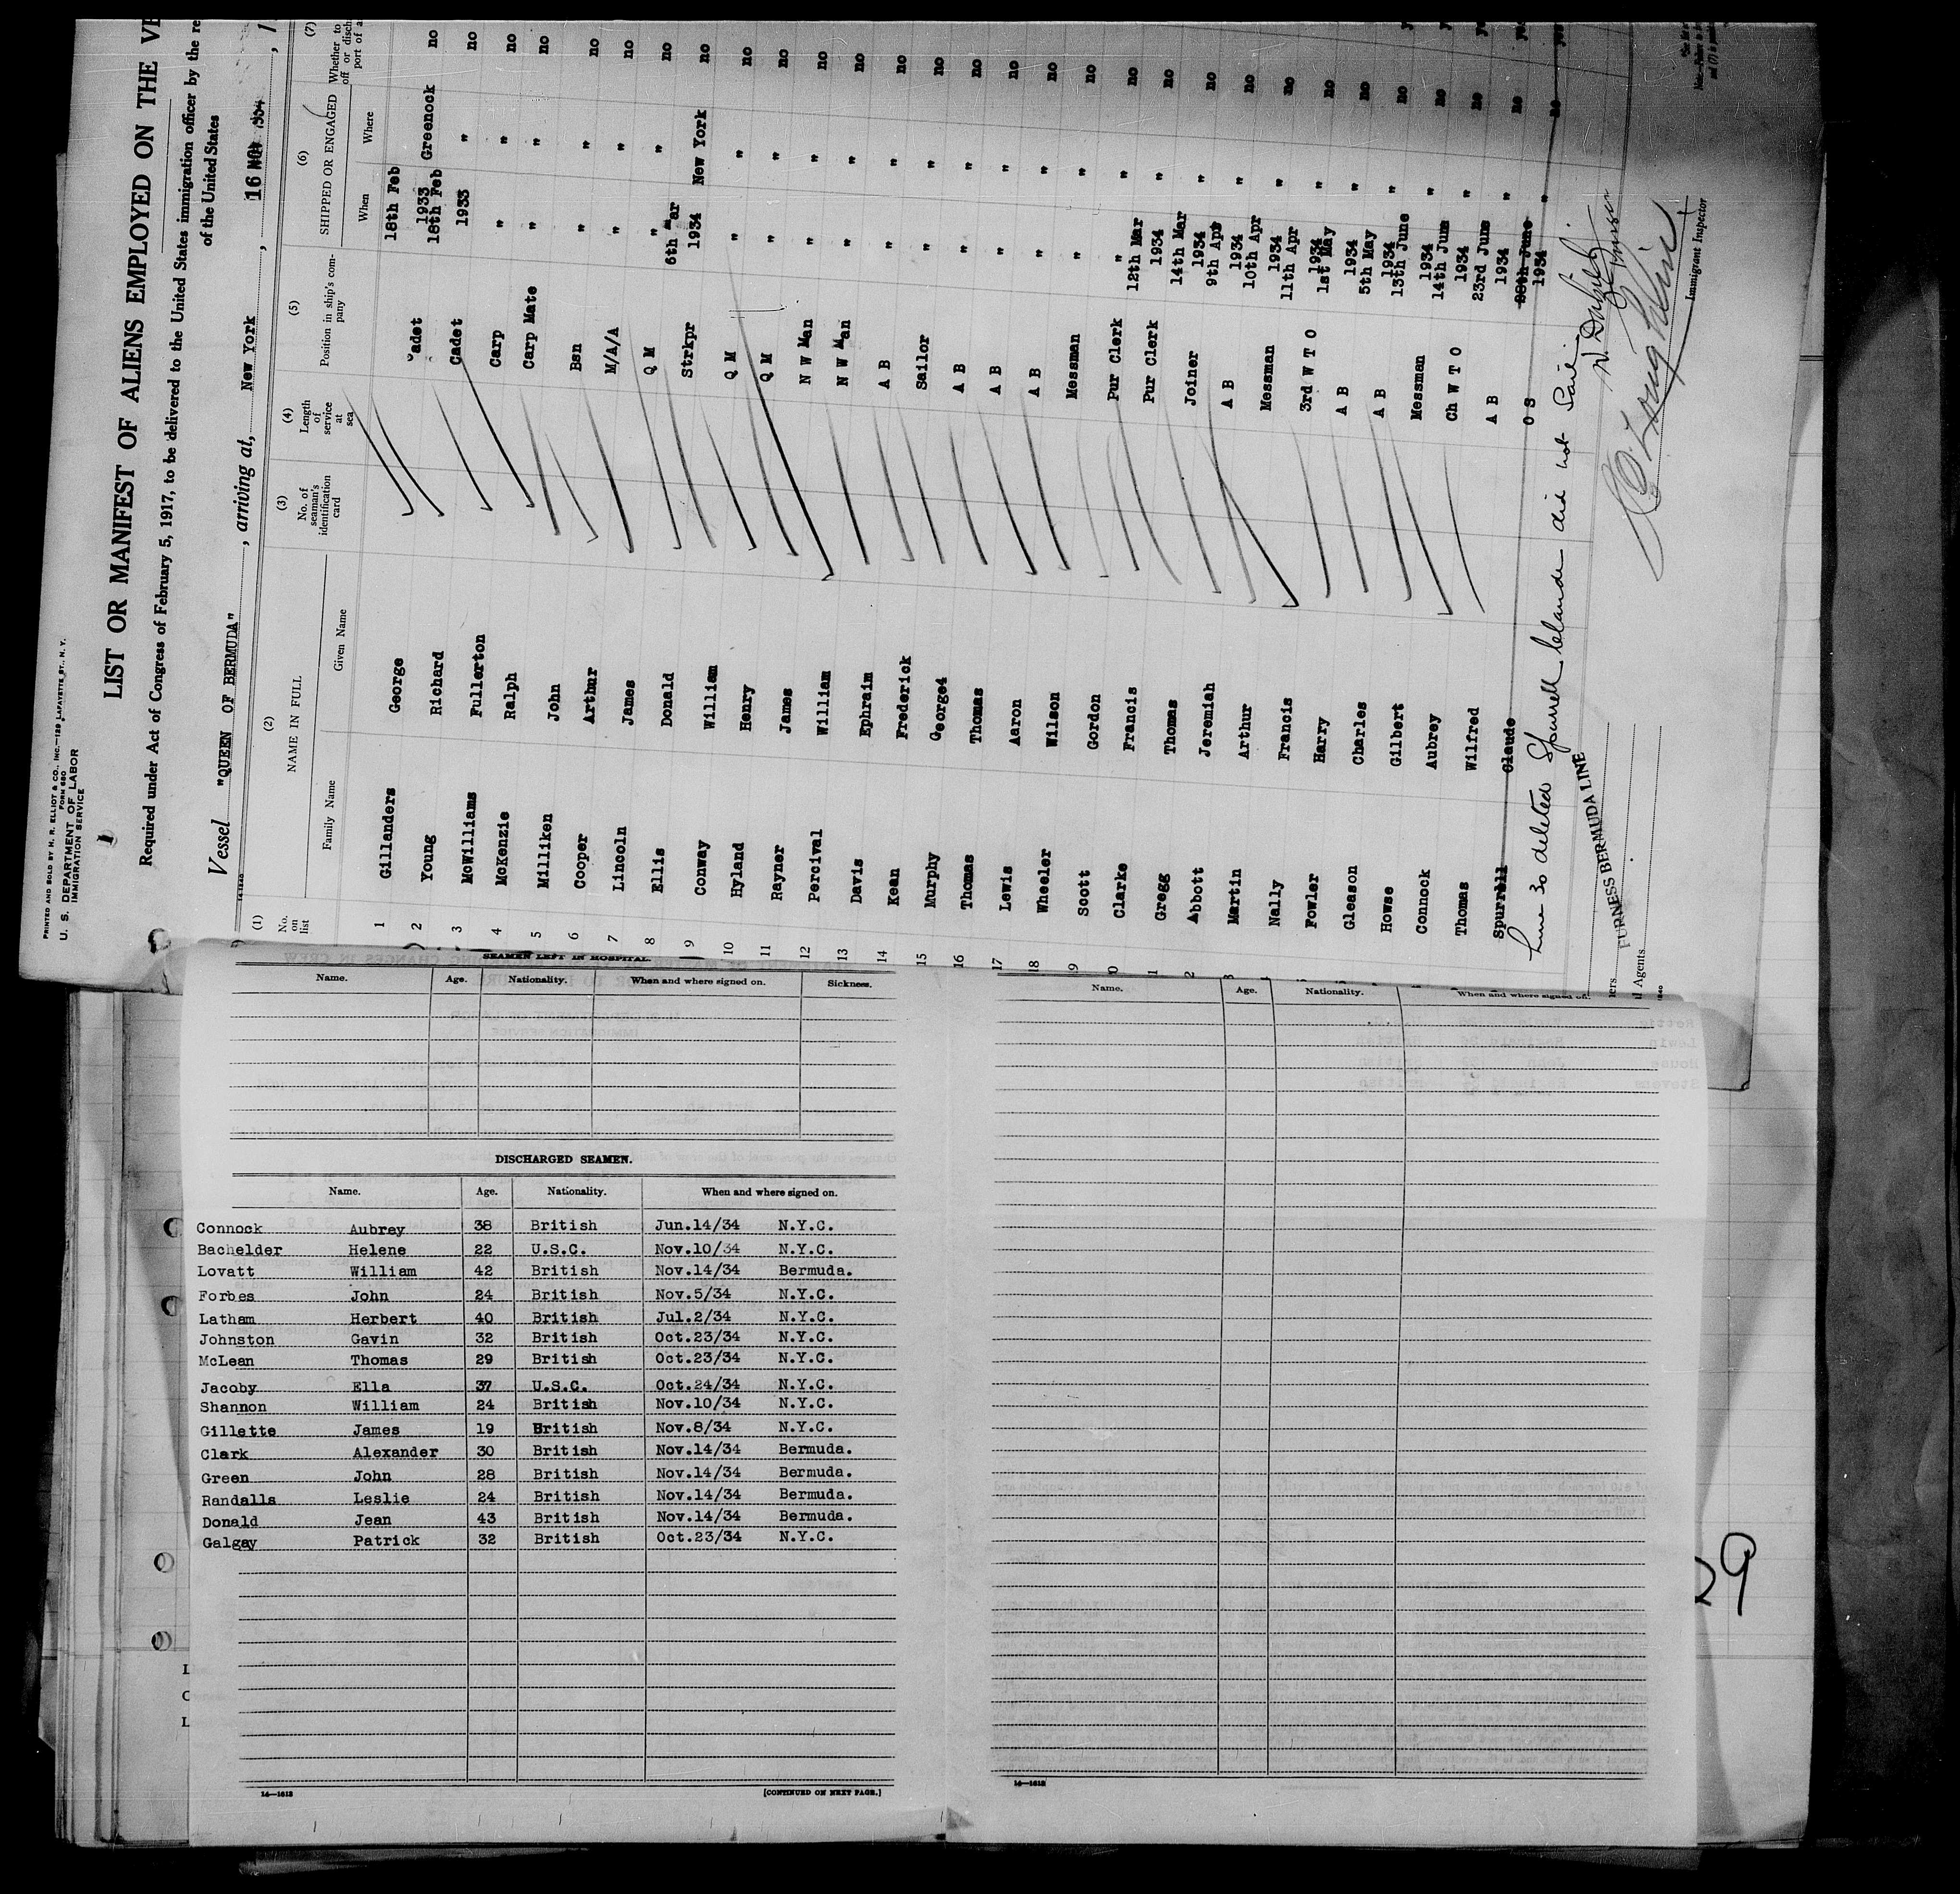 PRINTED AND SOLD BY H. R. ELLIOT & CO., INC.—129 LAFAYETTE ST., N. Y.
FORM 680
U. S. DEPARTMENT OF LABOR
IMMIGRATION SERVICE
LIST OR MANIFEST OF ALIENS EMPLOYED ON THE
Required under Act of Congress of February 5, 1917, to be delivered to the United States immigration officer by the
of the United States
Vessel "QUEEN OF BERMUDA", arriving at, New York, 16 NOV 1934
(1) (2) (3) (4) (5) (6) (7)
No. on list NAME IN FULL No. of seaman's identification card Length of service at sea Position in ship's company SHIPPED OR ENGAGED Whether to
Family Name Given Name When Where
1 Gillanders George Cadet 18th Feb 1933 Greenock no
2 Young Richard Cadet 18th Feb 1933 " no
3 McWilliams Fullerton Carp " " no
4 McKenzie Ralph Carp Mate " " no
5 Milliken John Bsn " " no
6 Cooper Arthur M/A/A " " no
7 Lincoln James Q M " " no
8 Ellis Donald Strkpr 6th Mar 1934 New York no
9 Conway William Q M " " no
10 Hyland Henry Q M " " no
11 Rayner James N W Man " " no
12 Percival William N W Man " " no
13 Davis Ephraim A B " " no
14 Kean Frederick Sailor " " no
15 Murphy George4 A B " " no
16 Thomas Thomas A B " " no
17 Lewis Aaron A B " " no
18 Wheeler Wilson Messman " " no
9 Scott Gordon Pur Clerk " " no
0 Clarke Francis Pur Clerk 12th Mar 1934 " no
1 Gregg Thomas Joiner 14th Mar 1934 " no
2 Abbott Jeremiah A B 9th Apr 1934 " no
Martin Arthur Messman 10th Apr 1934 " no
Nally Francis 3rd W T O 11th Apr 1934 " no
Fowler Harry A B 1st May 1934 " no
Gleason Charles A B 5th May 1934 " no
Howse Gilbert Messman 13th June 1934 " no
Connock Aubrey Ch W T O 14th June 1934 " no
Thomas Wilfred A B 23rd June 1934 " no
Spurrell Claude O S 28th June 1934 " no yes
Line 30 deleted Spurrell Claude did not Sail
FURNESS BERMUDA LINE
Agents
Immigrant Inspector
SEAMEN LEFT IN HOSPITAL.
Name. Age. Nationality. When and where signed on. Sickness.
DISCHARGED SEAMEN.
Name. Age. Nationality. When and where signed on.
Connock Aubrey 38 British Jun.14/34 N.Y.C.
Bachelder Helene 22 U.S.C. Nov.10/34 N.Y.C.
Lovatt William 42 British Nov.14/34 Bermuda.
Forbes John 24 British Nov.5/34 N.Y.C.
Latham Herbert 40 British Jul.2/34 N.Y.C.
Johnston Gavin 32 British Oct.23/34 N.Y.C.
McLean Thomas 29 British Oct.23/34 N.Y.C.
Jacoby Ella 37 U.S.C. Oct.24/34 N.Y.C.
Shannon William 24 British Nov.10/34 N.Y.C.
Gillette James 19 British Nov.8/34 N.Y.C.
Clark Alexander 30 British Nov.14/34 Bermuda.
Green John 28 British Nov.14/34 Bermuda.
Randalls Leslie 24 British Nov.14/34 Bermuda.
Donald Jean 43 British Nov.14/34 Bermuda.
Galgay Patrick 32 British Oct.23/34 N.Y.C.
14—1613
[CONTINUED ON NEXT PAGE.]
Name. Age. Nationality. When and where signed on.
14—1613
29